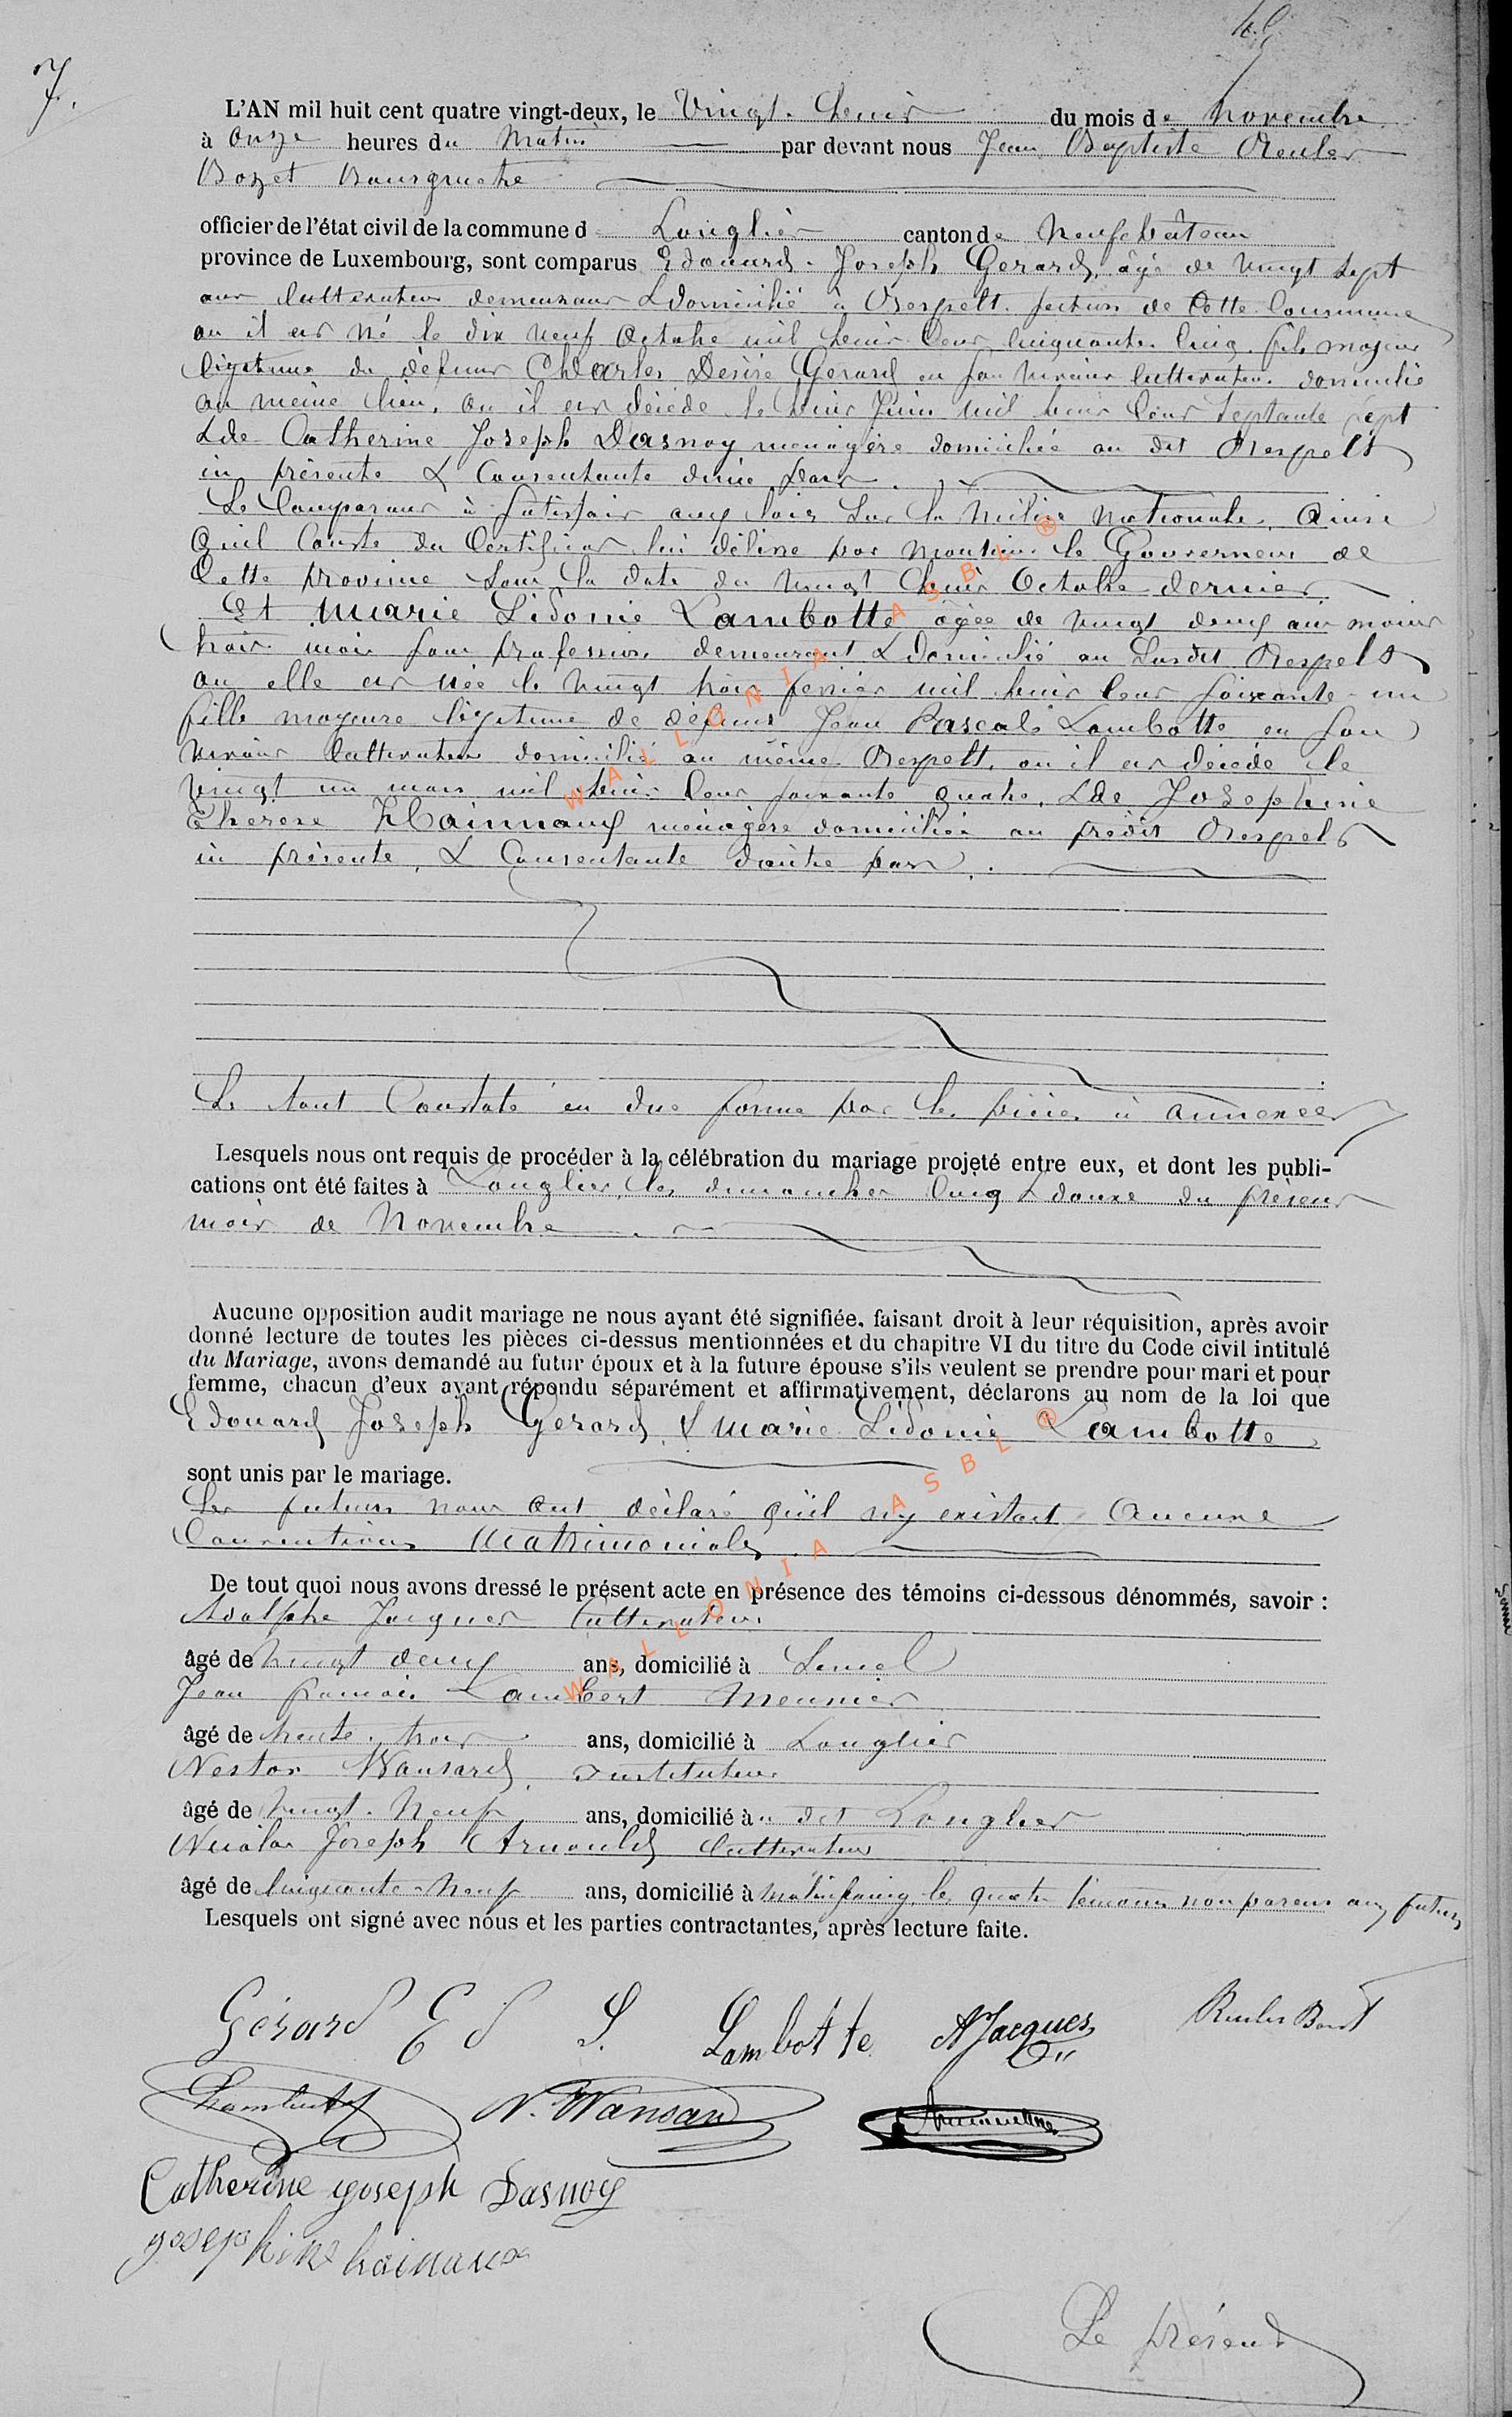 7.
L'AN mil huit cent quatre vingt-deux, le Vingt-huit du mois de Novembre
à onze heures du Matin par devant nous Jean Baptiste Reuler
Bozet Bourgmestre
officier de l'état civil de la commune de Longlier canton de Neufchâteau
province de Luxembourg, sont comparus Edouard Joseph Gerard, âgé de vingt sept
ans Cultivateur demeurant & domicilié à Respelt section de Cette Commune
ou il est né le dix neuf Octobre mil huit Cent Cinquante Cinq, fils majeur
légitime du défunt Charles Désiré Gerard en son vivant Cultivateur domicilié
au même lieu, ou il est décédé le huit Juin mil huit Cent Septante Sept
& de Catherine Joseph Dasnoy menagère domiciliée au dit Respelt
ici présente & Consentante d'une part.
Le Comparant à Satisfait aux lois Sur la Milice Nationale, Ainsi
Qu'il Conste du Certificat lui délivré par Monsieur le Gouverneur de
Cette province Sous la date du vingt Huit Octobre dernier
Et Marie Lidonie Lambotte âgée de vingt deux ans moins
trois mois Sans profession demeurant & Domicilié au Susdit Respelt
ou elle est née le vingt trois fevrier mil huit Cent Soixante-un
fille mageure légitime de défunt Jean Pascale Lambotte en son
vivant Cultivateur domicilié au même Respelt, ou il est décédé le
vingt un mars mil huit Cent soixante quatre, & de Josephine
Therese Hainnaux ménagère domiciliée au prédit Respelt
ici présente, & Consentante d'autre part.
Le tout Constaté en due forme par les pièces ci annexées
Lesquels nous ont requis de procéder à la célébration du mariage projeté entre eux, et dont les publi-
cations ont été faites à Longlier, les dimanches Cinq & douze du présent
mois de Novembre.
Aucune opposition audit mariage ne nous ayant été signifiée, faisant droit à leur réquisition, après avoir
donné lecture de toutes les pièces ci-dessus mentionnées et du chapitre VI du titre du Code civil intitulé
du Mariage, avons demandé au futur époux et à la future épouse s'ils veulent se prendre pour mari et pour
femme, chacun d'eux ayant répondu séparément et affirmativement, déclarons au nom de la loi que
Edouard Joseph Gerard, & Marie Lidonie Lambotte
sont unis par le mariage.
Les futurs nous ont déclaré qu'il n'y existait Aucune
Conventions Matrimoniales.
De tout quoi nous avons dressé le présent acte en présence des témoins ci-dessous dénommés, savoir :
Adolphe Jacques Cultivateur
âgé de vingt deux ans, domicilié à Semel
Jean François Lambert Meunier
âgé de trente-trois ans, domicilié à Longlier
Nestor Wansard, Instituteur
âgé de vingt-Neuf ans, domicilié au dit Longlier
Nicolas Joseph Arnould Cultivateur
âgé de Cinquante-Neuf ans, domicilié à Molinfaing, les quatre témoins non parens aux futurs
Lesquels ont signé avec nous et les parties contractantes, après lecture faite.
Gérard E J L Lambotte AJacques Reuler Bozet
N. Wansard
Catherine joseph Dasnoy
josephine hainaux
Le présent
WALLONIA ASBL ®
WALLONIA ASBL ®